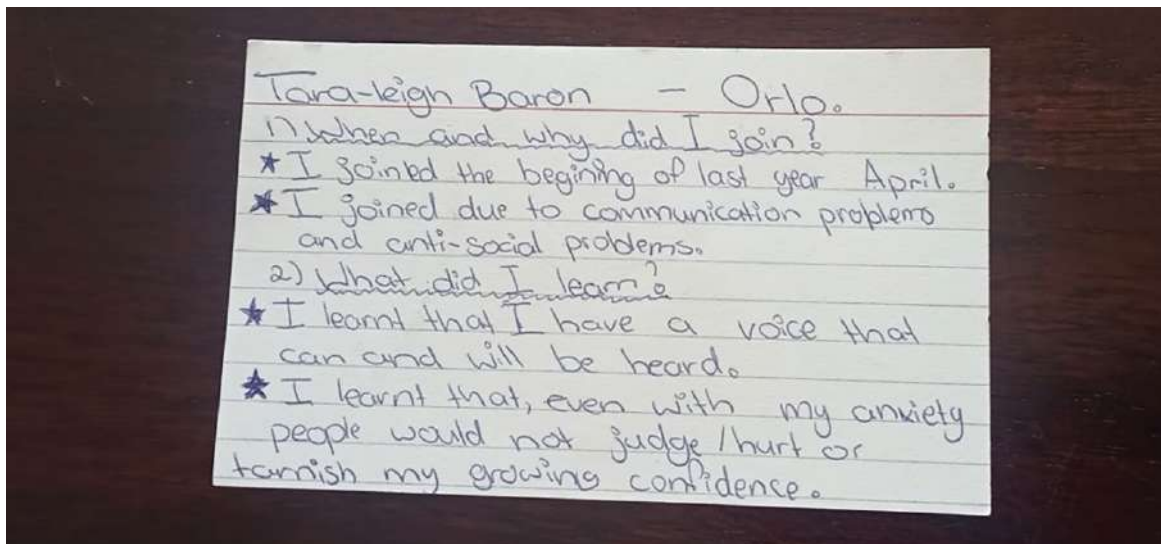 Tara-leigh Baron - Orlo.
1) When and why did I join?
★ I joined the begining of last year April.
★ I joined due to communication problems
and anti-social problems.
2) What did I learn?
★ I learnt that I have a voice that
can and will be heard.
★ I learnt that, even with my anxiety
people would not judge / hurt or
tarnish my growing confidence.